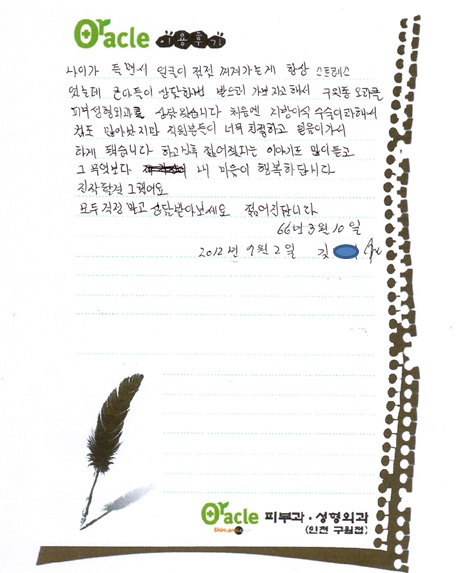 Oracle 이용후기
나이가 들면서 얼굴이 점점 쳐져가는게 항상 스트레스
였는데 큰아들이 상담한번 받으러 가보자고해서 구월동 오라클
피부성형외과를 상담왔습니다 처음엔 지방이식 수술이라해서
겁도 많아보지만 직원분들이 너무 친절하고 원장이가서
하게 됐습니다 하고난후 젊어졌다는 이야기도 많이듣고
그 무엇보다 내 마음이 행복하답니다
진작할걸 그랬어요
모두 걱정 말고 상담받아보세요 젊어진답니다
66년 3월 10일
2012년 9월 2일 김
Oracle 피부과·성형외과
(인천 구월점)